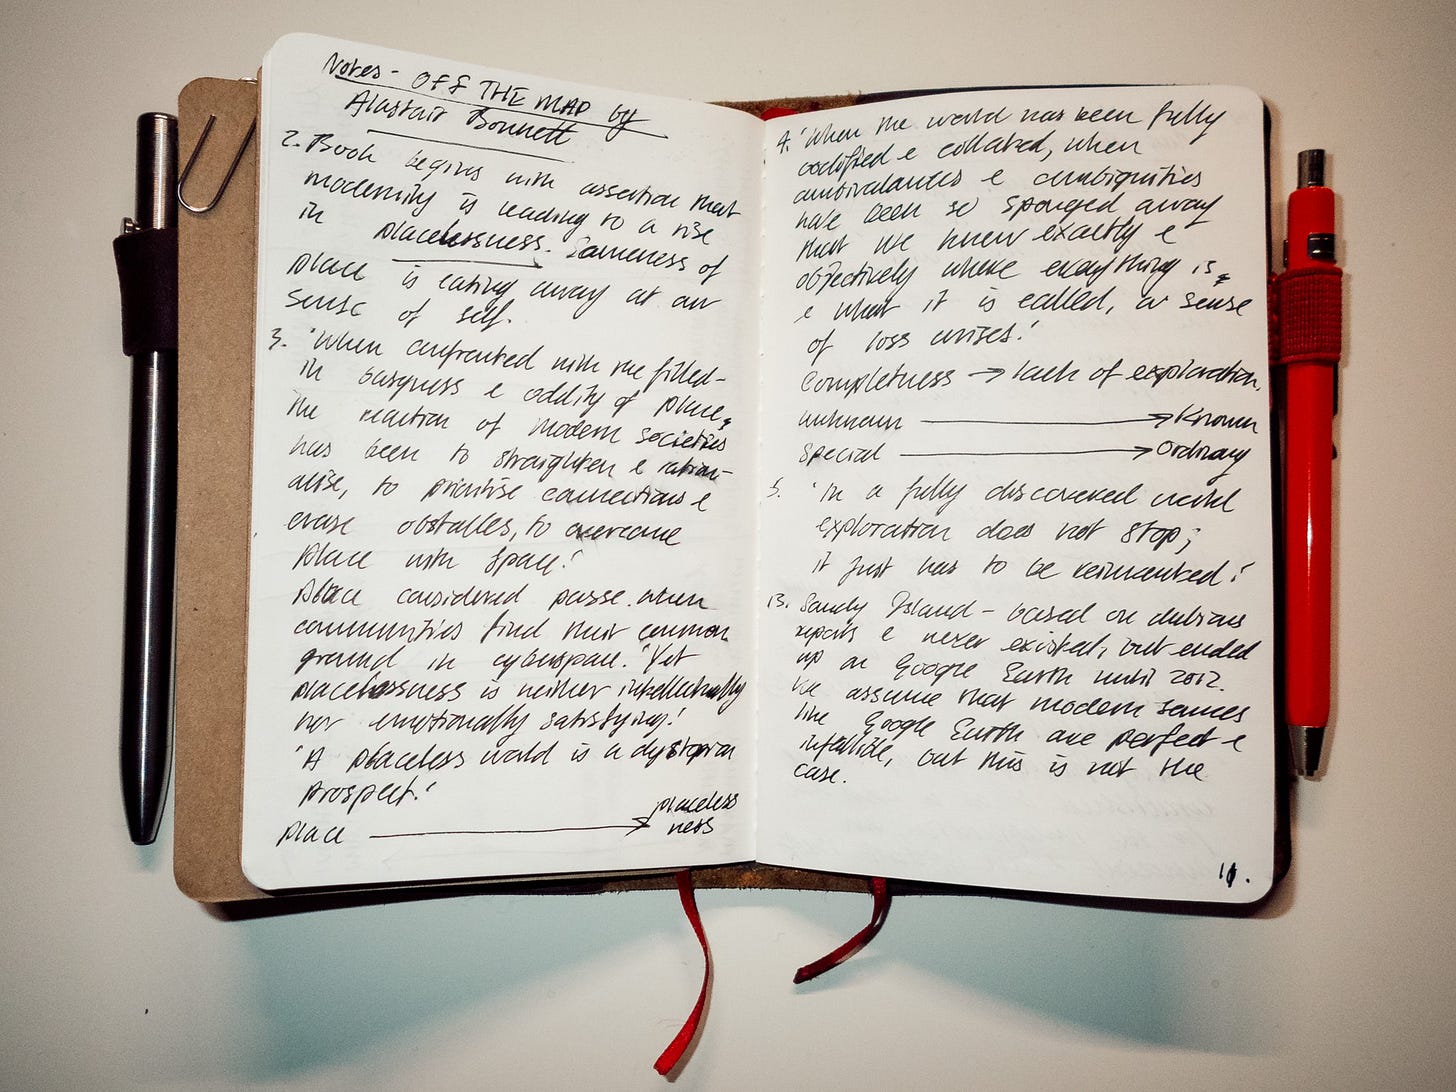 Notes - OFF THE MAP by
Alastair Bonnett
2. Book begins with assertion that
modernity is leading to a rise
in placelessness. Sameness of
place is eating away at our
sense of self.
3. 'When confronted with the filled-
in bagness & oddity of place,
the reaction of modern societies
has been to straighten & ration-
alise, to prioritise connections &
erase obstacles, to overcome
place with space.'
Place considered passe when
communities find their common
ground in cyberspace. 'Yet
placelessness is neither intellectually
nor emotionally satisfying.'
'A placeless world is a dystopian
prospect.'
place → placeless
ness
4. 'When the world has been fully
codified & collated, when
ambivalances & ambiguities
have been so sponged away
that we know exactly &
objectively where everything is,
& what it is called, a sense
of loss arises.'
Completness → lack of exploration.
unknown → Known
special → Ordinary
5. 'In a fully discovered world
exploration does not stop;
it just has to be reinvented.'
13. Sandy Island - based on dubious
reports & never existed, but ended
up on Google Earth until 2012.
We assume that modern sources
like Google Earth are perfect &
infallible, but this is not the
case.
11.